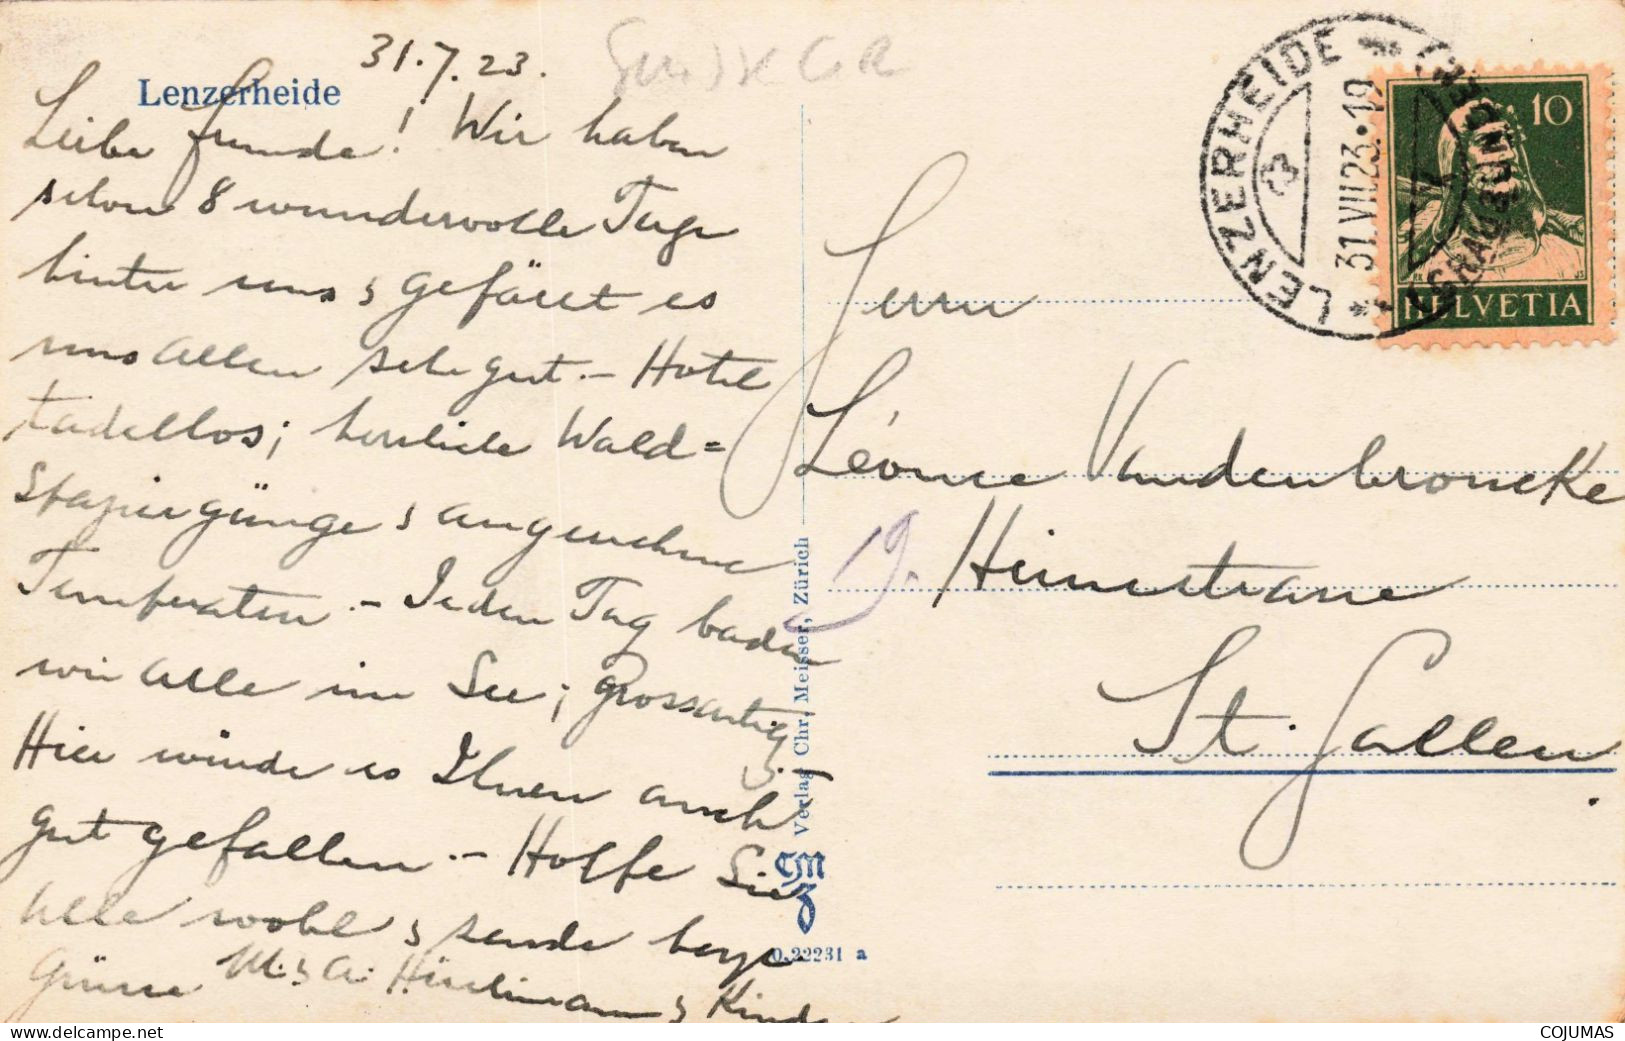 Lenzerheide
31.7.23.
Liebe Freunde! Wir haben
schon 8 wundervolle Tage
hinter uns & gefällt es
uns allen sehr gut. – Hotel
tadellos; herrliche Wald=
spaziergänge & angenehme
Temperatur. – Jeden Tag baden
wir alle im See; grossartig.
Hier würde es Ihnen auch
gut gefallen. – Hoffe Sie
alle wohl & sende herzl.
Grüsse M. & A. Hürlimann & Kinder
Verlag Chr. Meisser, Zürich
CMZ
0.22231 a
LENZERHEIDE
(GRAUBÜNDEN)
31.VII.23.19
10
HELVETIA
Herrn
Léonce Vandenbroucke
19. Heinestrasse
St. Gallen.
COJUMAS